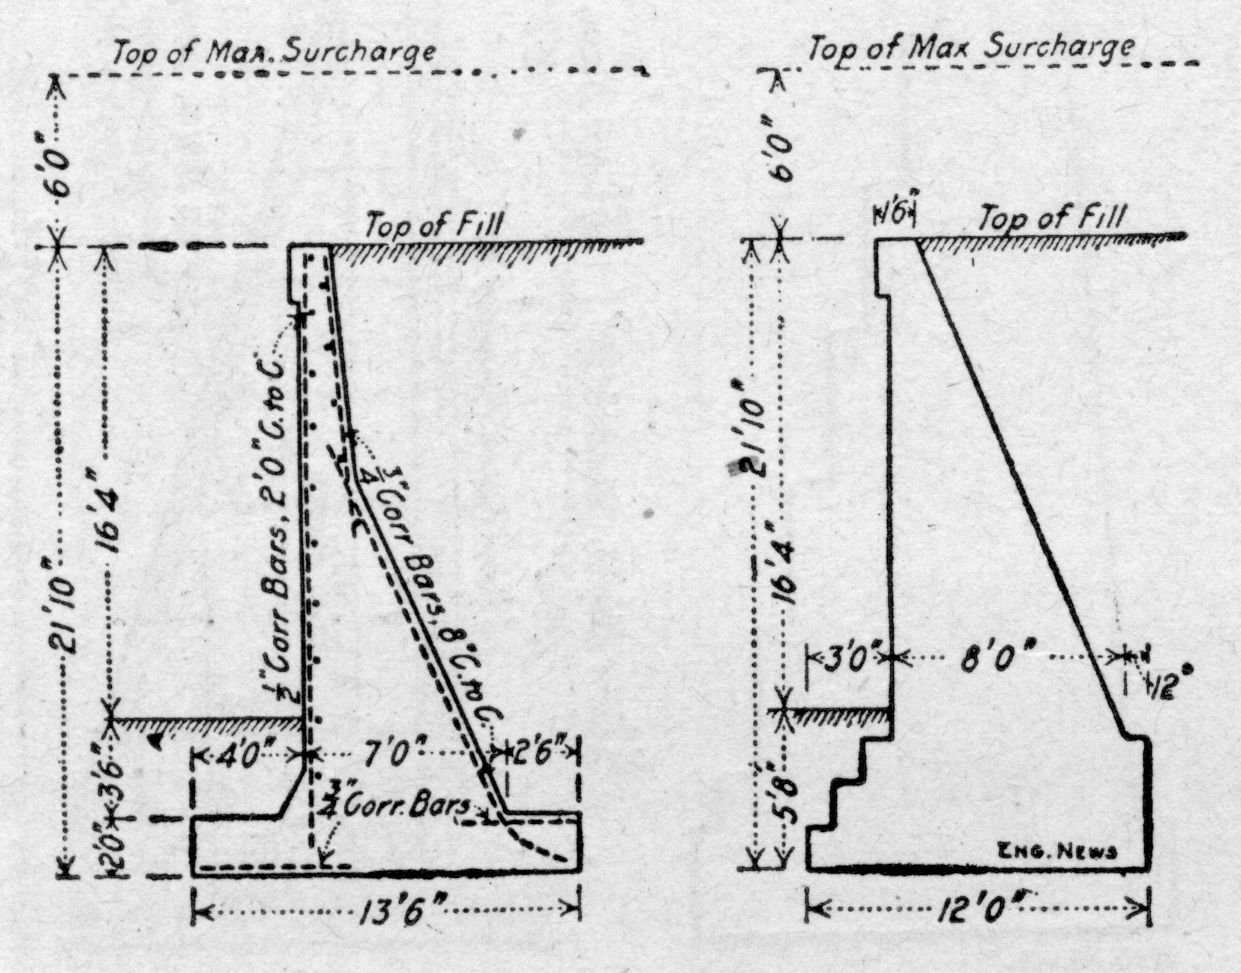 Top of Max. Surcharge
6'0"
Top of Fill
21'10"
16'4"
1/2" Corr Bars, 2'0" C. to C.
3/4" Corr Bars, 8" C. to C.
4'0"
7'0"
2'6"
3'6"
2'0"
3/4" Corr. Bars
13'6"
Top of Max Surcharge
6'0"
1'6"
Top of Fill
21'10"
16'4"
3'0"
8'0"
12"
5'8"
ENG. NEWS
12'0"